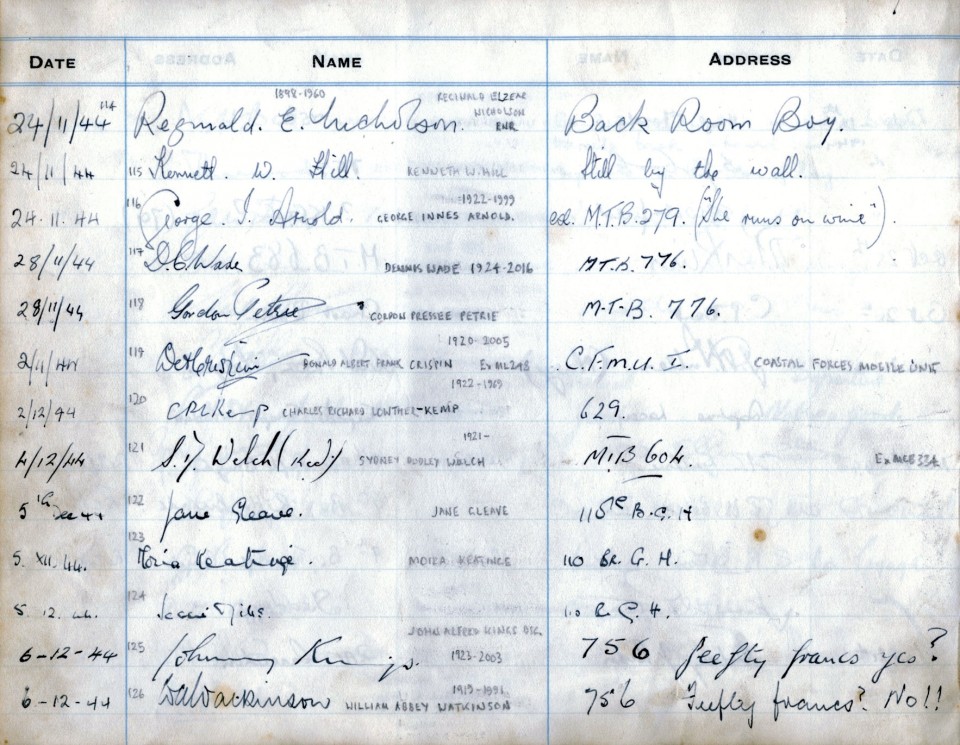 DATE NAME ADDRESS
1898-1960 REGINALD ELZEAR
NICHOLSON
RNR
24/11/44 114 Reginald. E. Nicholson. Back Room Boy.
24/11/44 115 Kenneth. W. Hill. KENNETH W. HILL Still by the wall.
1922-1999
24.11.44 116 George. I. Arnold. GEORGE INNES ARNOLD. M.T.B. 279. ("She runs on wine").
28/11/44 117 D.C. Wade DENNIS WADE 1924-2016 M.T.B. 776.
28/11/44 118 Gordon Petrie GORDON PETRIE M.T.B. 776.
1920-2005
119 RONALD ALBERT FRANK CRISPIN Ex ML248 C.F.M.U. I. COASTAL FORCES MOBILE UNIT
1922-1969
2/12/44 120 CRL Kemp CHARLES RICHARD LOWTHER-KEMP 629.
1921-
4/12/44 121 S.D. Welch (Ked) SYDNEY DUDLEY WELCH MTB 604. Ex MGB 334
5th Dec 44 122 Jane Gleave. JANE GLEAVE B.G.H
5. XII. 44. 123 Moira Keatinge. MOIRA KEATINGE 110 Br. G. H.
5. 12. 44. 124 G. H.
JOHN ALFRED KINGS DSC.
6-12-44 125 Johnny Kings. 1923-2003 756 feefty francs yes?
1919-1991
6-12-44 126 WAWatkinson WILLIAM ABBEY WATKINSON 756 Feefty francs? No!!